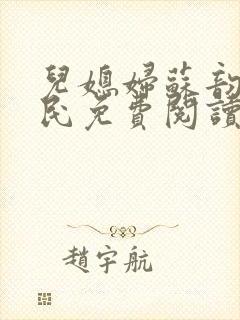 兒媳婦蘇韵
民免費閱讀
趙宇航